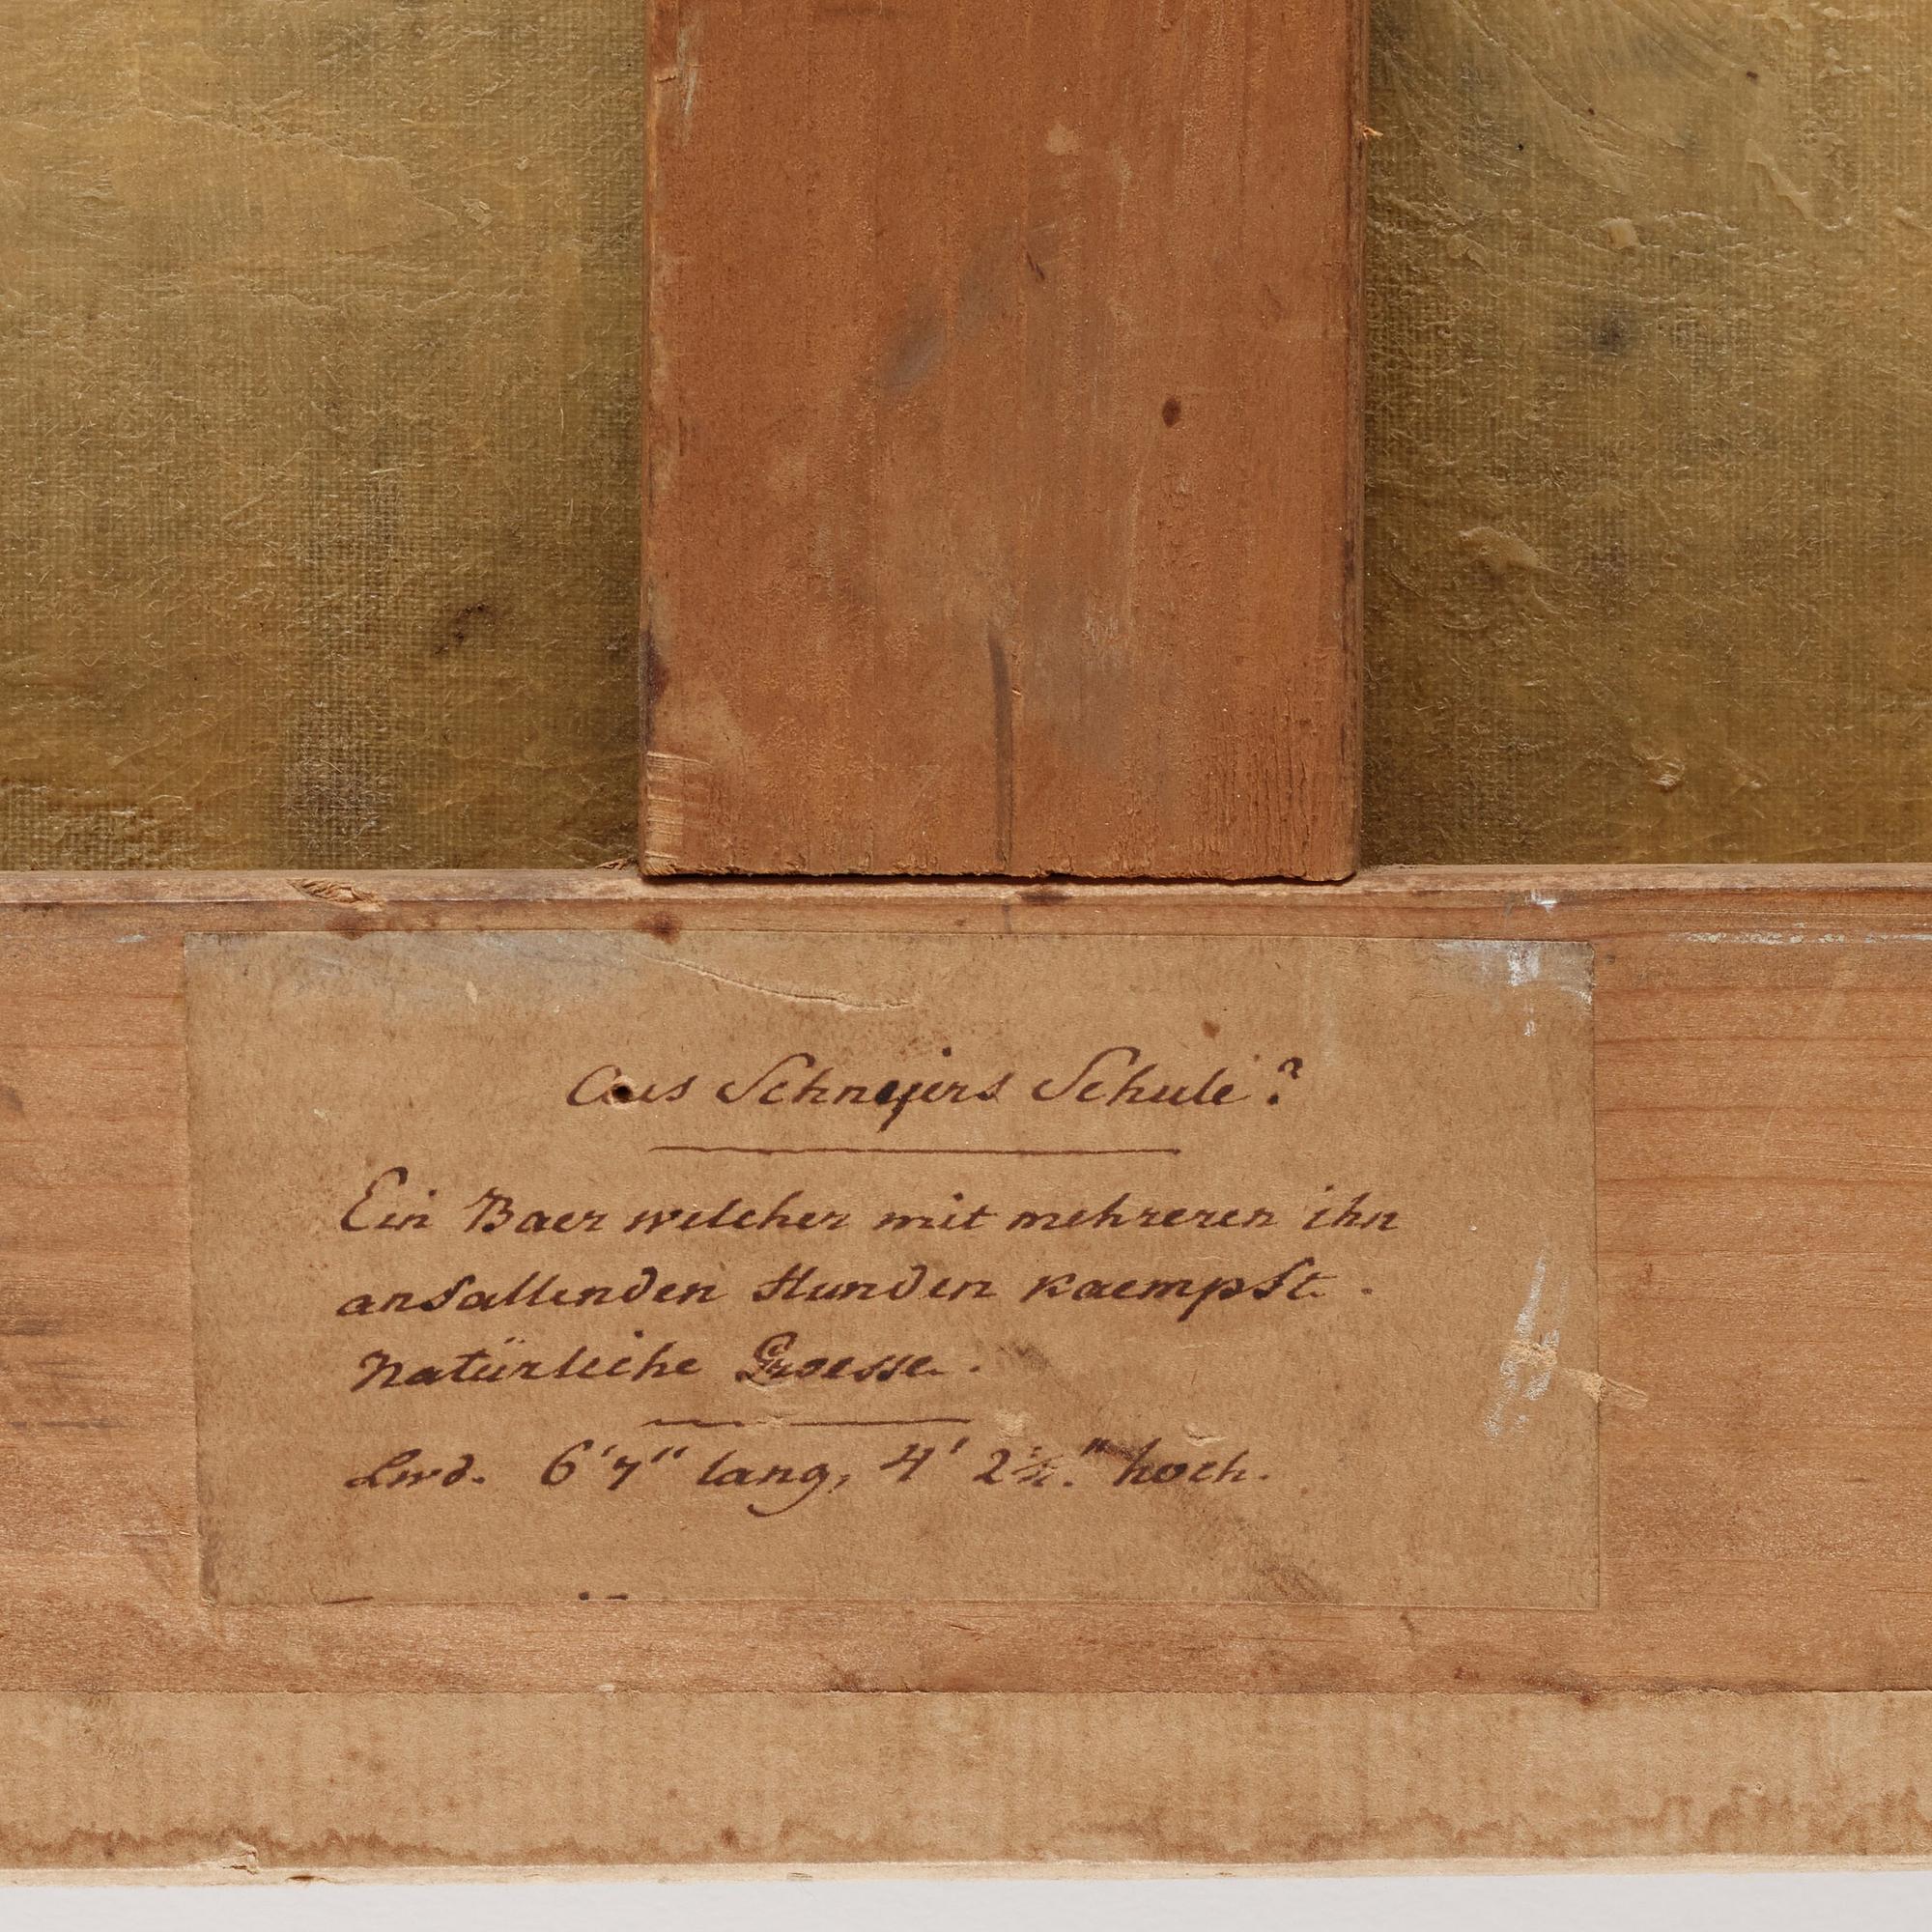 Aus Schneyers Schule?
Ein Baer welcher mit mehreren ihn
anfallenden Hunden kaempft.
Natürliche Groesse.
Lwd. 6'7" lang, 4' 2½." hoch.